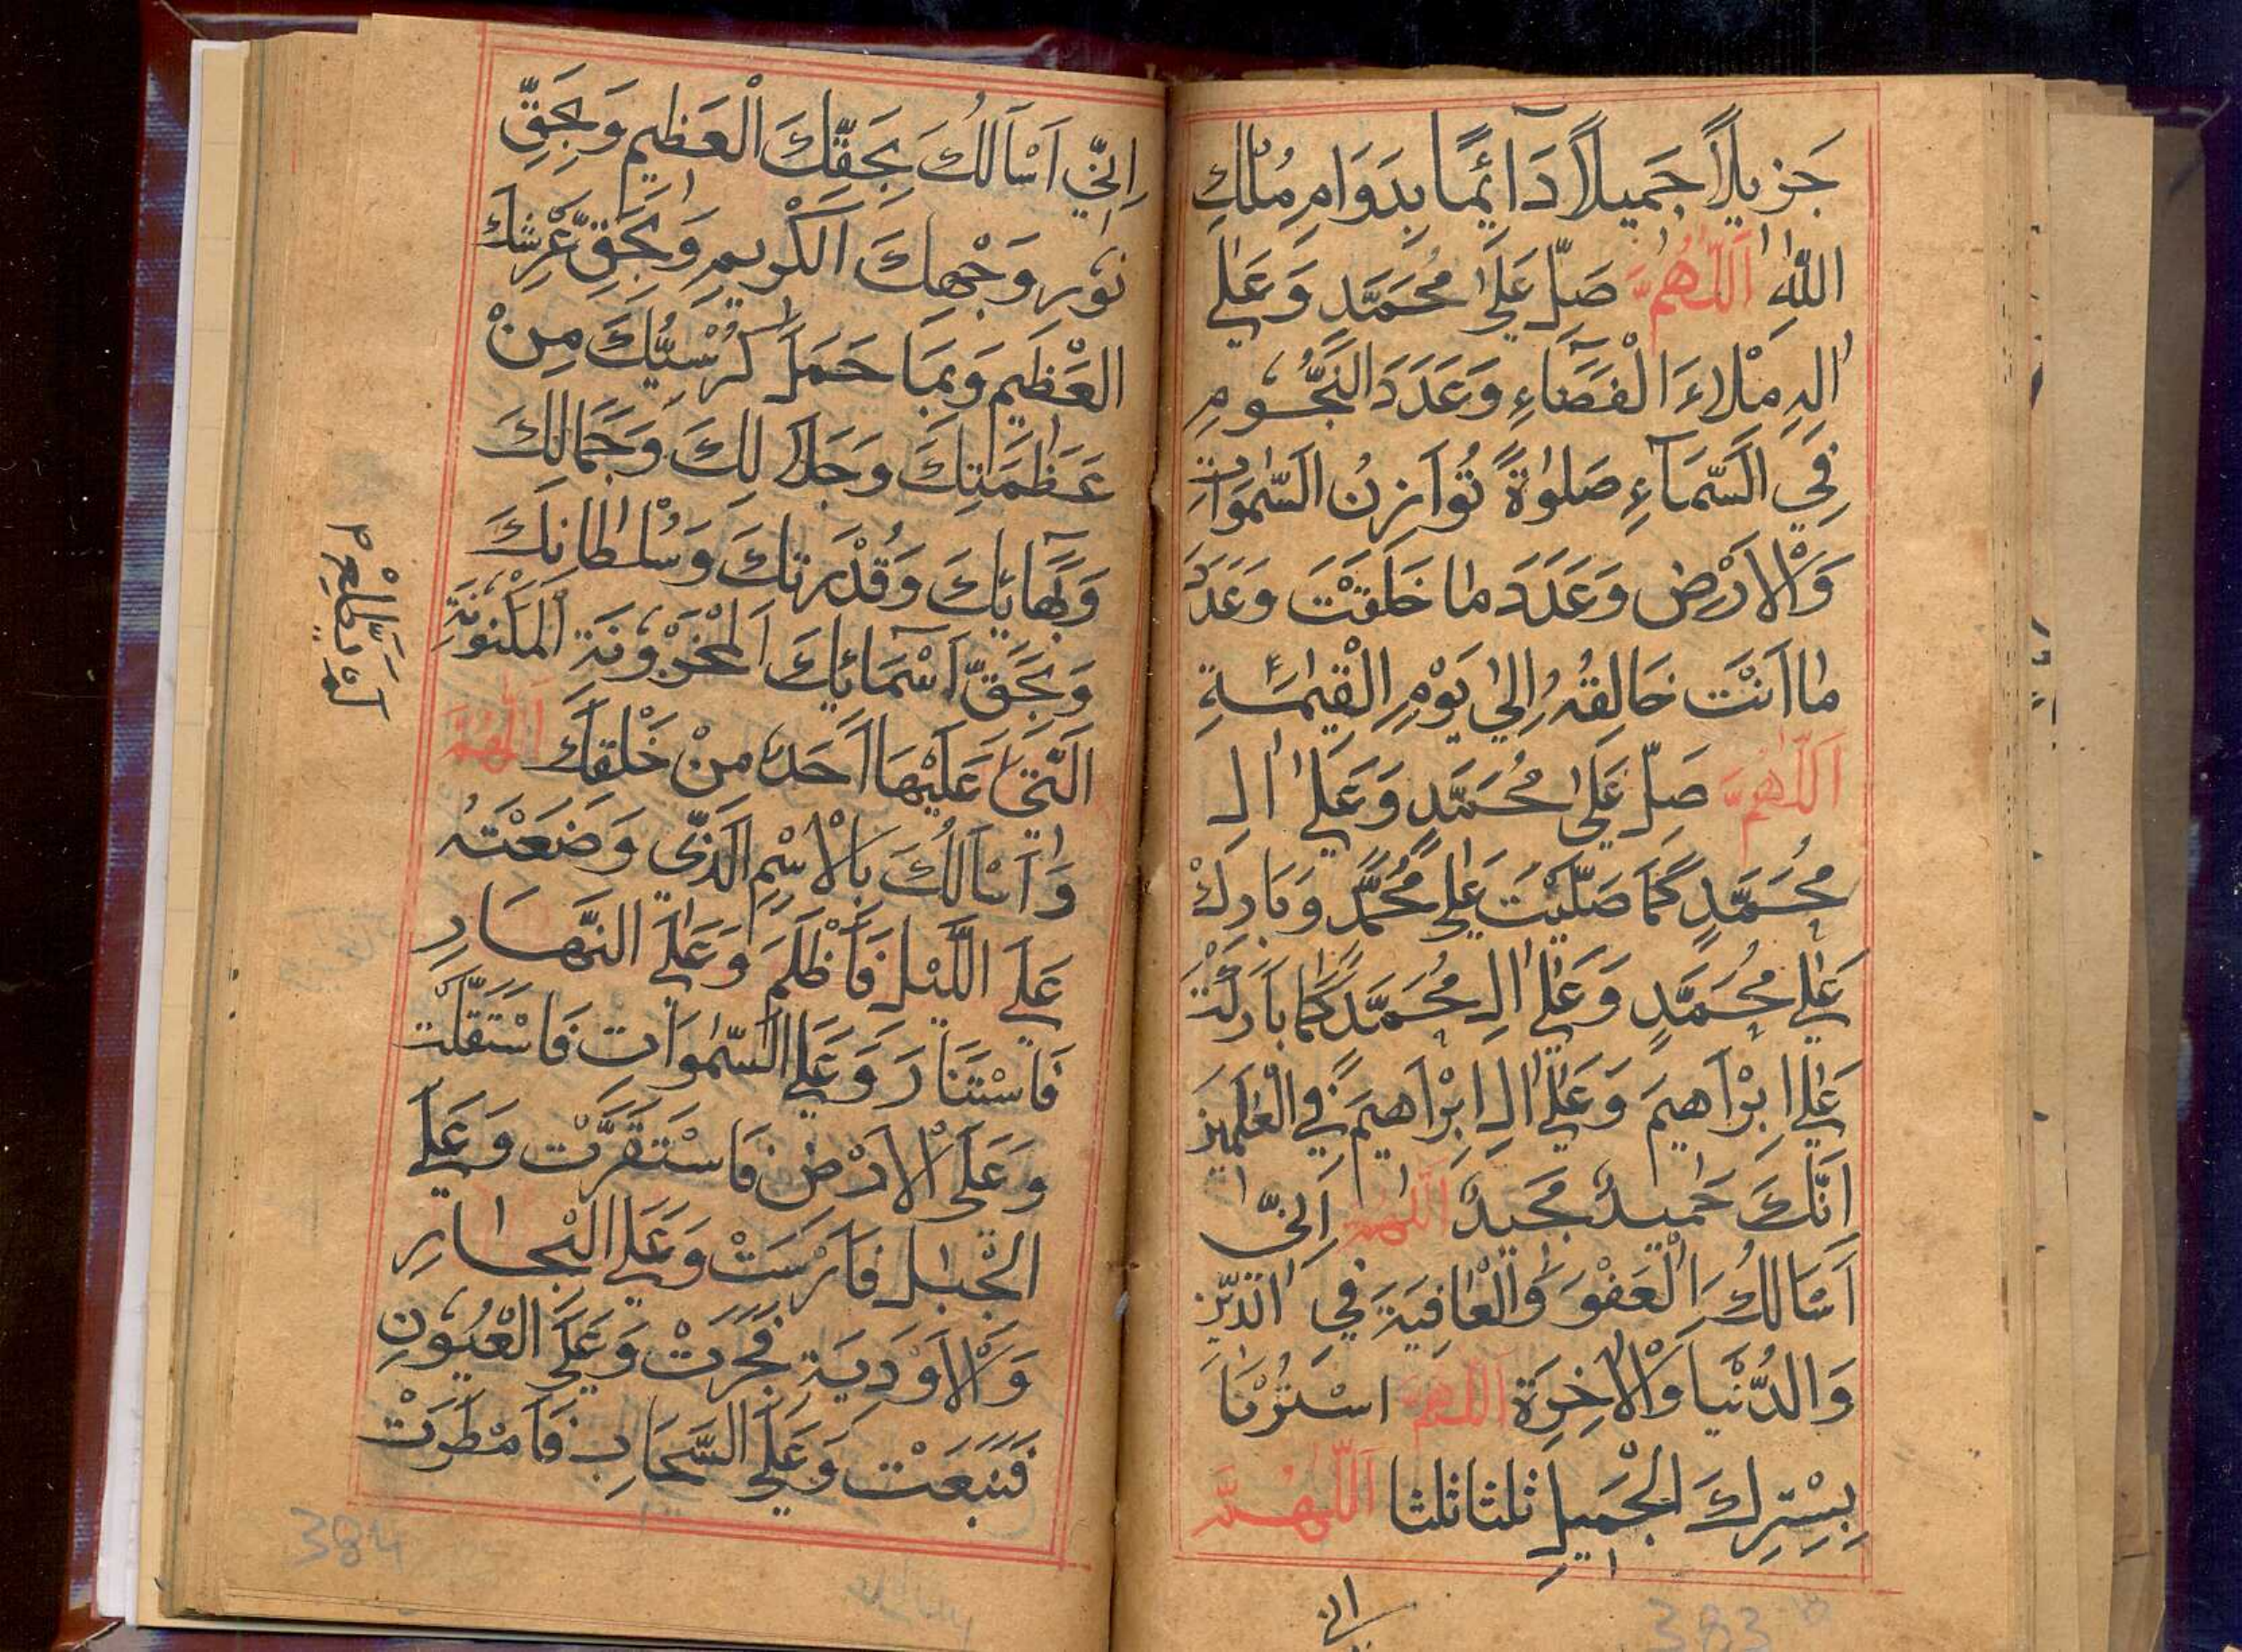 جَزِيلًا جَمِيلًا دَآئِمًا بِدَوَامِ مُلْكِ
اللهِ اَللّٰهُمَّ صَلِّ عَلٰي مُحَمَّدٍ وَعَلٰي
اٰلِهِ مِلْاءَ الْفَضَآءِ وَعَدَدَ النُّجُومِ
فِي السَّمَآءِ صَلٰوةً تُوَازِنُ السَّمٰوَاتِ
وَالْاَرْضَ وَعَدَدَ مَا خَلَقْتَ وَعَدَدَ
مَا اَنْتَ خَالِقُهُ اِلٰي يَوْمِ الْقِيٰمَةِ
اَللّٰهُمَّ صَلِّ عَلٰي مُحَمَّدٍ وَعَلٰي اٰلِ
مُحَمَّدٍ كَمَا صَلَّيْتَ عَلٰي مُحَمَّدٍ وَبَارِكْ
عَلٰي مُحَمَّدٍ وَعَلٰي اٰلِ مُحَمَّدٍ كَمَا بَارَكْتَ
عَلٰي اِبْرَاهِيمَ وَعَلٰي اٰلِ اِبْرَاهِيمَ فِي الْعٰلَمِينَ
اِنَّكَ حَمِيدٌ مَجِيدٌ اَللّٰهُمَّ اِنِّي
اَسْاَلُكَ الْعَفْوَ وَالْعَافِيَةَ فِي الدِّينِ
وَالدُّنْيَا وَالْاٰخِرَةِ اَللّٰهُمَّ اسْتُرْنَا
بِسِتْرِكَ الْجَمِيلِ ثلثا ثلثا اَللّٰهُمَّ
اني
383
اِنِّي اَسْاَلُكَ بِحَقِّكَ الْعَظِيمِ وَبِحَقِّ
نُورِ وَجْهِكَ الْكَرِيمِ وَبِحَقِّ عَرْشِكَ
الْعَظِيمِ وَبِمَا حَمَلَ كُرْسِيُّكَ مِنْ
عَظَمَتِكَ وَجَلَالِكَ وَجَمَالِكَ
وَبَهَآئِكَ وَقُدْرَتِكَ وَسُلْطَانِكَ
وَبِحَقِّ اَسْمَآئِكَ الْمَخْزُونَةِ الْمَكْنُونَةِ
الَّتِي عَلَيْهَا اَحَدٌ مِنْ خَلْقِكَ اَللّٰهُمَّ
وَاَسْاَلُكَ بِالْاِسْمِ الَّذِي وَضَعْتَهُ
عَلَي اللَّيْلِ فَاَظْلَمَ وَعَلَي النَّهَارِ
فَاسْتَنَارَ وَعَلَي السَّمٰوَاتِ فَاسْتَقَلَّتْ
وَعَلَي الْاَرْضِ فَاسْتَقَرَّتْ وَعَلَي
الْجِبَالِ فَاَرْسَتْ وَعَلَي الْبِحَارِ
وَالْاَوْدِيَةِ فَجَرَتْ وَعَلَي الْعُيُونِ
فَنَبَعَتْ وَعَلَي السَّحَابِ فَاَمْطَرَتْ
384